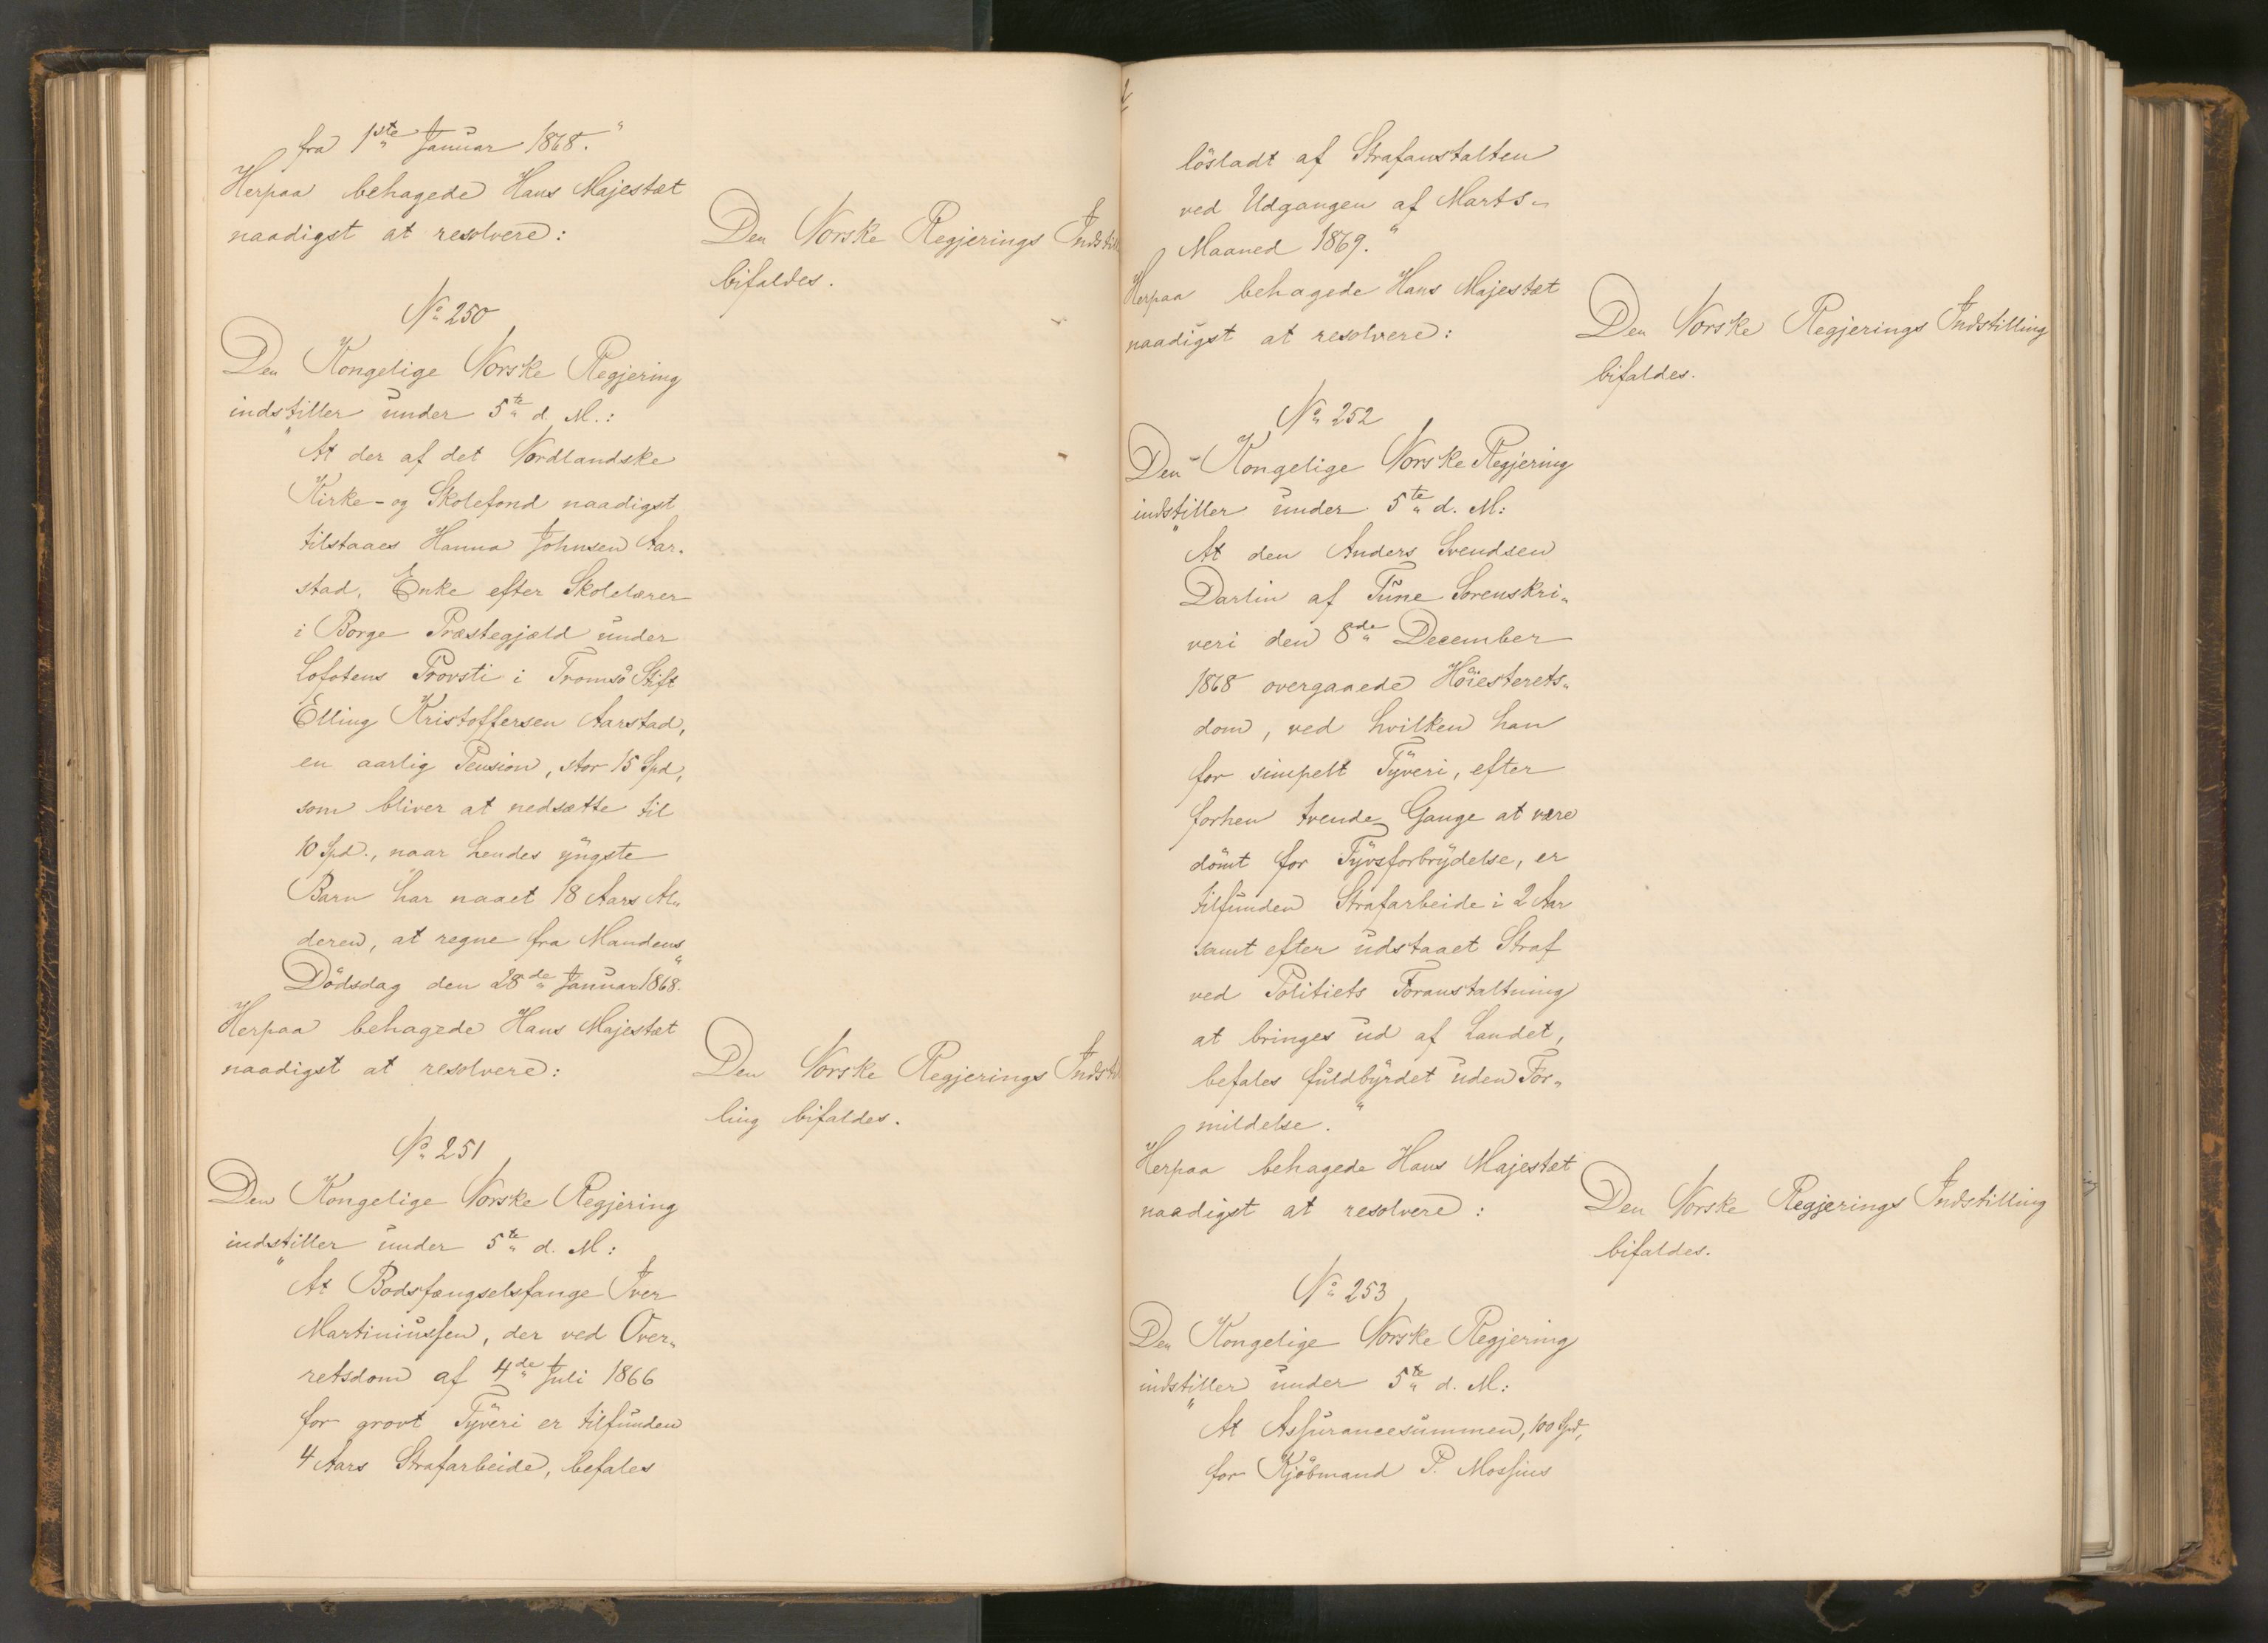 fra 1ste Januar 1868."
Herpaa behagede Hans Majestæt
naadigst at resolvere:
Den Norske Regjerings Indstil
bifaldes.
No 250
Den Kongelige Norske Regjering
indstiller under 5te d. M.:
"At der af det Nordlandske
Kirke- og Skolefond naadigst
tilstaaes Hanna Johnsen Aar-
stad, Enke efter Skolelærer
i Borge Præstegjæld under
Lofotens Provsti i Tromsö Stift
Elling Kristoffersen Aarstad,
en aarlig Pension, stor 15 Spd,
som bliver at nedsætte til
10 Spd., naar hendes yngste
Barn har naaet 18 Aars Al-
deren, at regne fra Mandens
Dödsdag den 28de Januar 1868."
Herpaa behagede Hans Majestæt
naadigst at resolvere:
Den Norske Regjerings Indstil
ling bifaldes.
No 251
Den Kongelige Norske Regjering
indstiller under 5te d. M:
"At Bodsfængselsfange Iver
Martiniussen, der ved Over-
retsdom af 4de Juli 1866
for grovt Tyveri er tilfunden
4 Aars Strafarbeide, befales
lösladt af Strafanstalten
ved Udgangen af Marts-
Maaned 1869."
Herpaa behagede Hans Majestæt
naadigst at resolvere:
Den Norske Regjerings Indstilling
bifaldes.
No 252
Den Kongelige Norske Regjering
indstiller under 5te d. M:
"At den Anders Svendsen
Darlin af Tune Sorenskri-
veri den 8de December
1868 overgaaede Höiesterets-
dom, ved hvilken han
for simpelt Tyveri, efter
forhen trende Gange at være
dömt for Tyvsforbrydelse, er
tilfunden Strafarbeide i 2 Aar
samt efter udstaaet Straf
ved Politiets Foranstaltning
at bringes ud af Landet,
befales fuldbyrdet uden For-
mildelse."
Herpaa behagede Hans Majestæt
naadigst at resolvere:
Den Norske Regjerings Indstilling
bifaldes.
No 253
Den Kongelige Norske Regjering
indstiller under 5te d. M:
"At Assurancesummen, 100 Spd,
for Kjöbmand P. Mossins